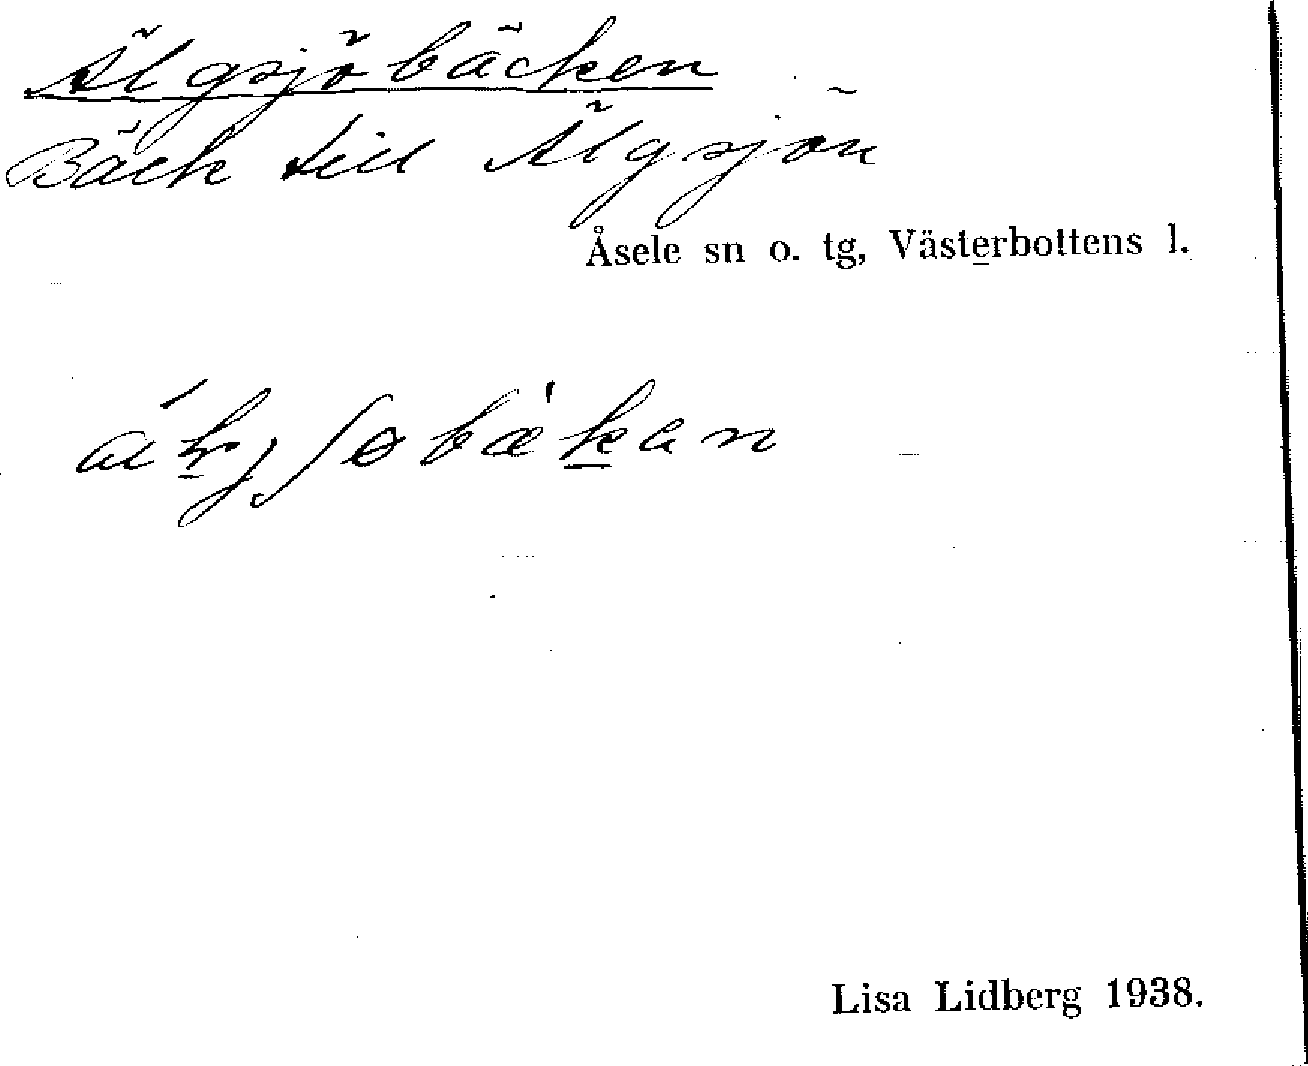 Älgsjöbäcken
Bäck till Älgsjön
Åsele sn o. tg, Västerbottens l.
Lisa Lidberg 1938.